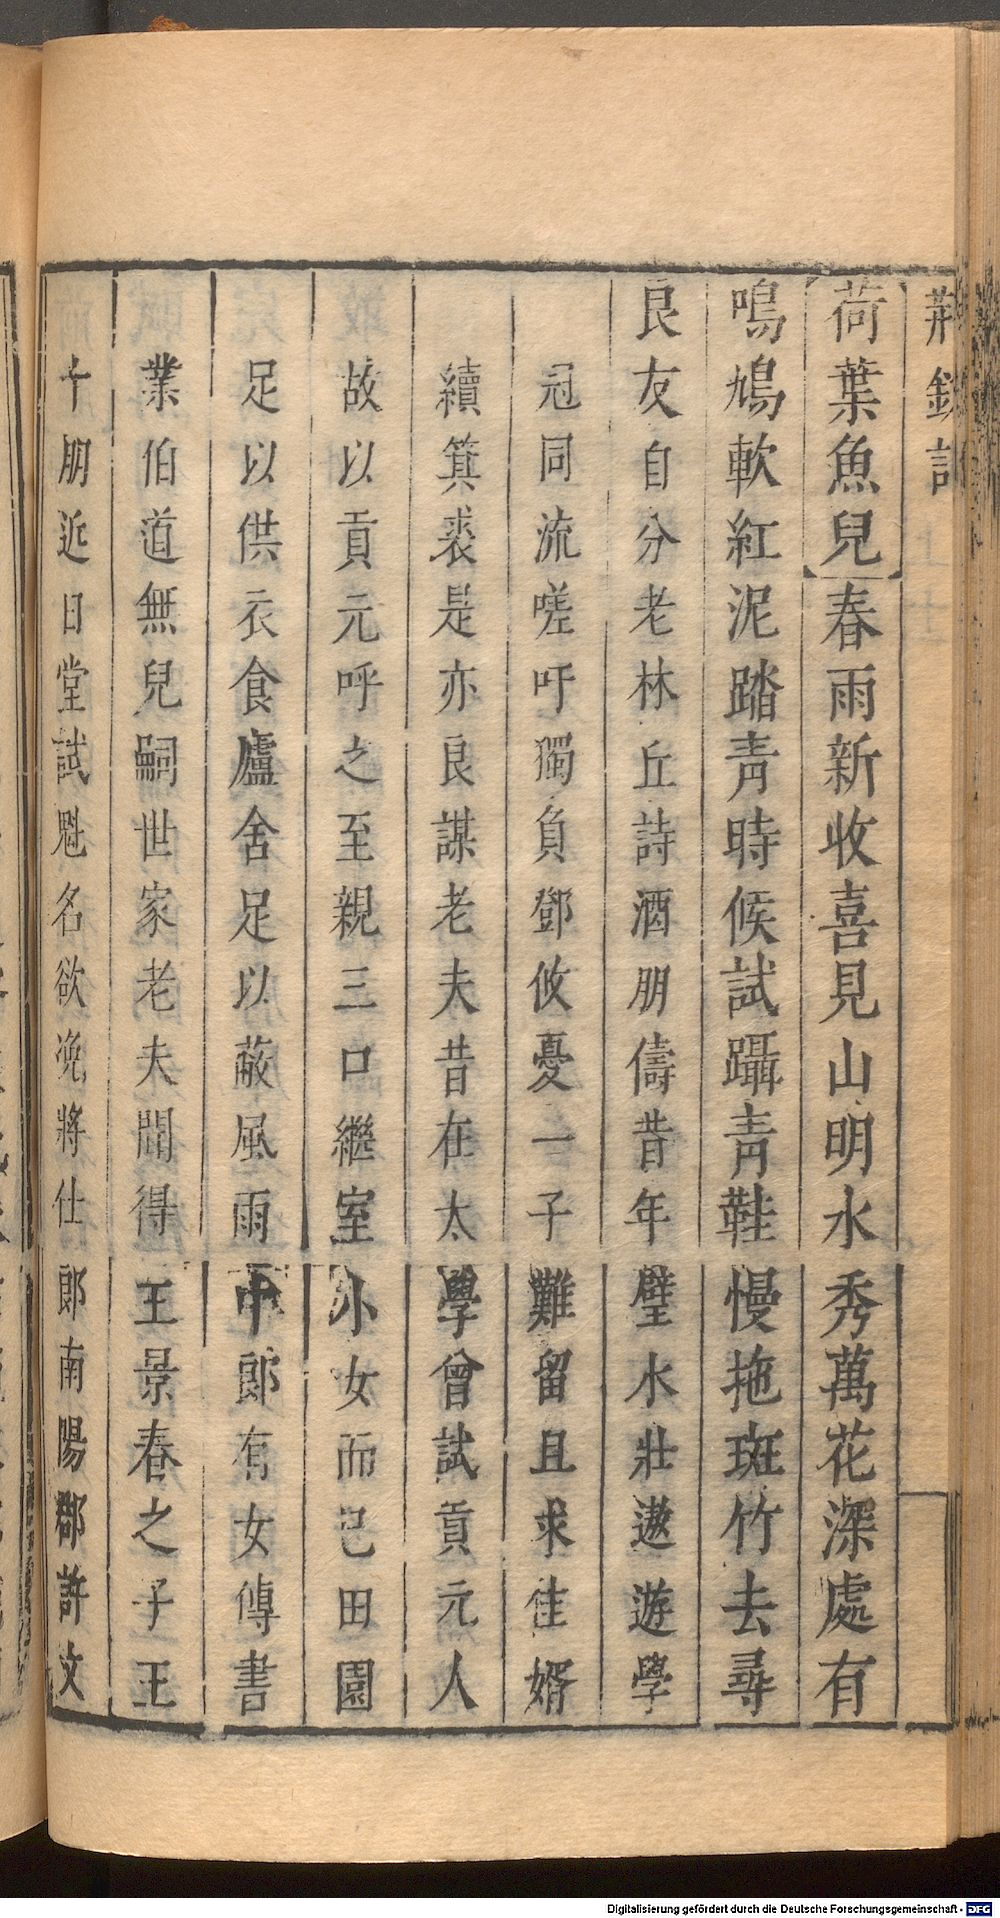 荊釵記
荷葉魚兒春雨新收喜見山明水秀萬花深處有
鳴鳩軟紅泥踏青時候試躡青鞋慢拖斑竹去尋
良友自分老林丘詩酒朋儔昔年璧水壯遨遊學
冠同流嗟吁獨負鄧攸憂一子難留且求佳婿
續箕裘是亦良謀老夫昔在太學曾試貢元人
故以貢元呼之至親三口繼室小女而已田園
足以供衣食廬舍足以蔽風雨中郎有女傳書
業伯道無兒嗣世家老夫聞得王景春之子王
十朋近日堂試魁名欲浼將仕郎南陽郡許文
Digitalisierung gefördert durch die Deutsche Forschungsgemeinschaft - DFG